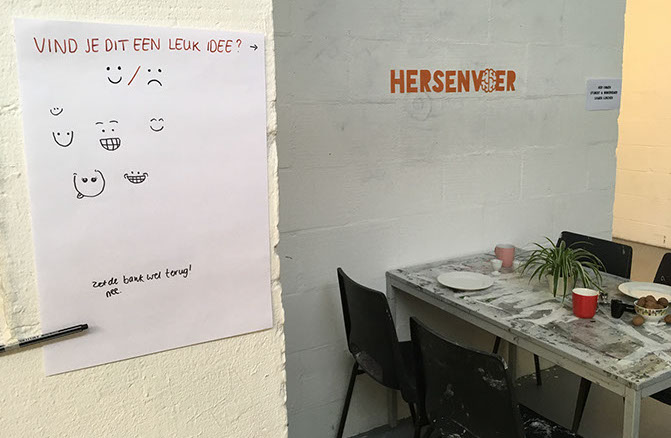 VIND JE DIT EEN LEUK IDEE? →
zet de bank wel terug!
nee.
HERSENVOER